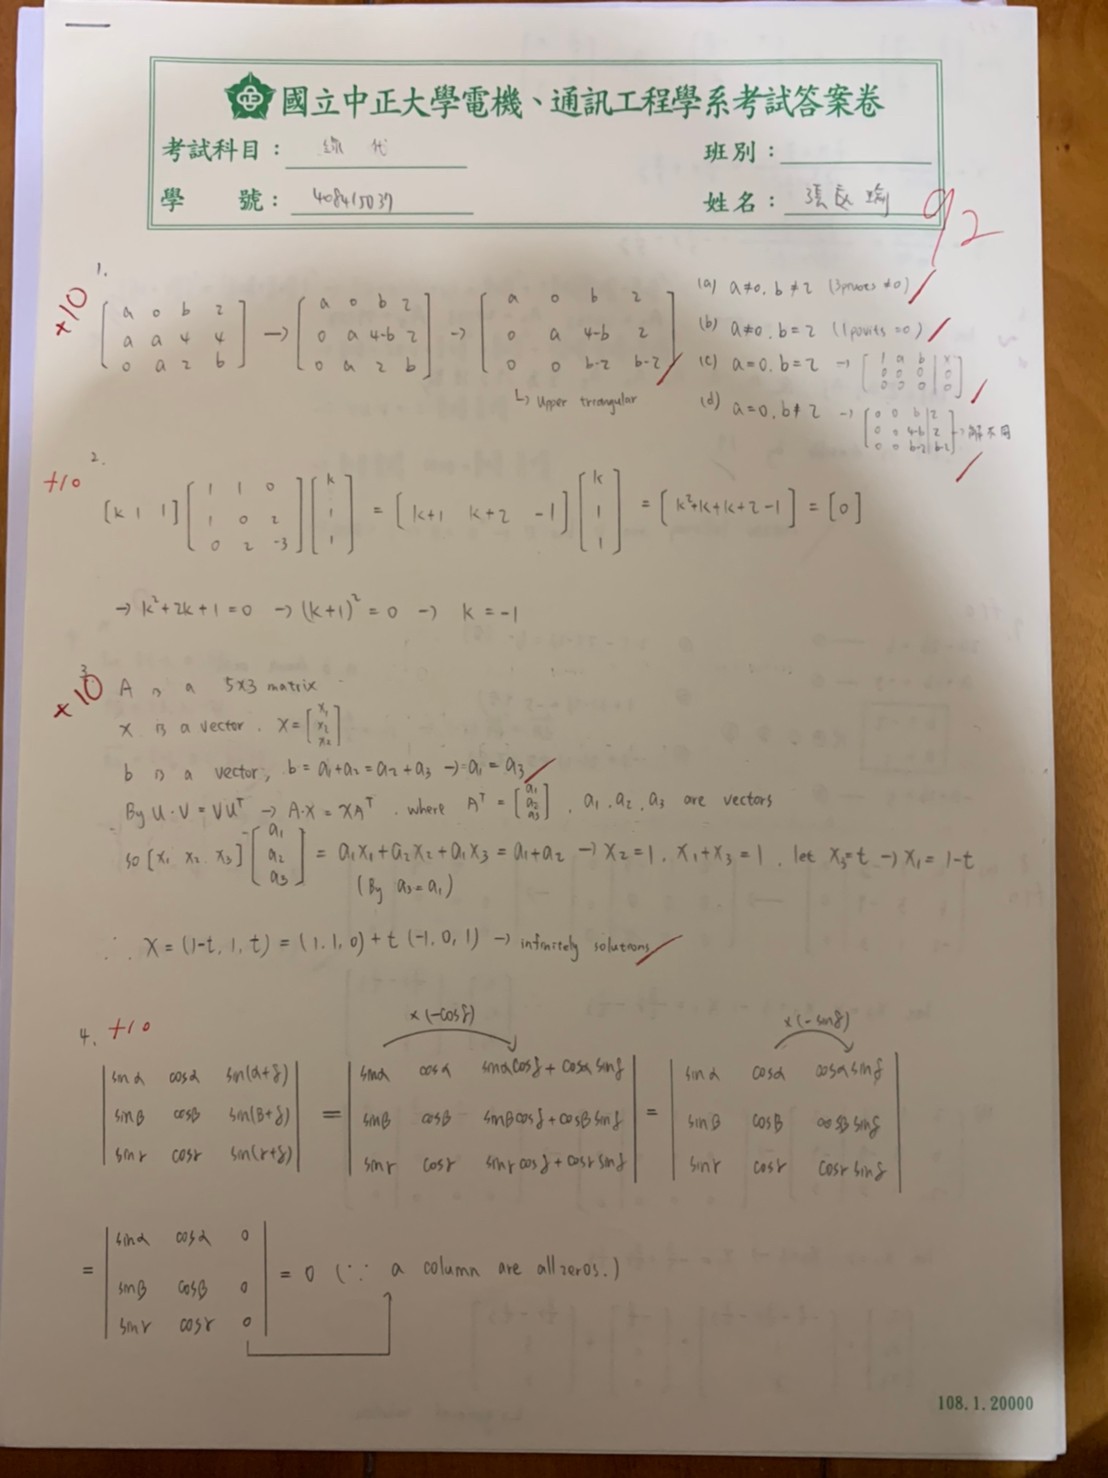 國立中正大學電機、通訊工程學系考試答案卷
考試科目： 線代 班別：
學 號： 408415037 姓名： 張 瑜
92
+10
1.
[a 0 b 2; a a 4 4; 0 a 2 b] → [a 0 b 2; 0 a 4-b 2; 0 a 2 b] → [a 0 b 2; 0 a 4-b 2; 0 0 b-2 b-2]
↳ Upper triangular
(a) a≠0, b≠2 (3 ≠0)
(b) a≠0, b=2 (1 povits =0)
(c) a=0, b=2 → [1 a b | x; 0 0 0 | 0; 0 0 0 | 0]
(d) a=0, b≠2 → [0 0 b | 2; 0 0 4-b | 2; 0 0 b-2 | b-2] → 解不同
+10
2.
[k 1 1] [1 1 0; 1 0 2; 0 2 -3] [k; 1; 1] = [k+1 k+2 -1] [k; 1; 1] = [k²+k+k+2-1] = [0]
→ k²+2k+1=0 → (k+1)²=0 → k=-1
+10
3.
A is a 5x3 matrix
x is a vector. X=[x₁; x₂; x₂]
b is a vector, b=a₁+a₂=a₂+a₃ → a₁=a₃
By U·V=VUᵀ → A·X=XAᵀ, where Aᵀ=[a₁; a₂; a₃], a₁, a₂, a₃ are vectors
so [x₁ x₂ x₃] [a₁; a₂; a₃] = a₁x₁+a₂x₂+a₁x₃=a₁+a₂ → x₂=1, x₁+x₃=1, let x₃=t → x₁=1-t
(By a₃=a₁)
∴ X=(1-t, 1, t)=(1, 1, 0)+t(-1, 0, 1) → infinitely solutions
4. +10
×(-cosδ) ×(-sinδ)
|sinα cosα sin(α+δ); sinβ cosβ sin(β+δ); sinr cosr sin(r+δ)| = |sinα cosα sinαcosδ+cosαsinδ; sinβ cosβ sinβcosδ+cosβsinδ; sinr cosr sinrcosδ+cosrsinδ| = |sinα cosα cosαsinδ; sinβ cosβ cosβsinδ; sinr cosr cosrsinδ|
= |sinα cosα 0; sinβ cosβ 0; sinr cosr 0| = 0 (∵ a column are all zeros.)
108.1.20000